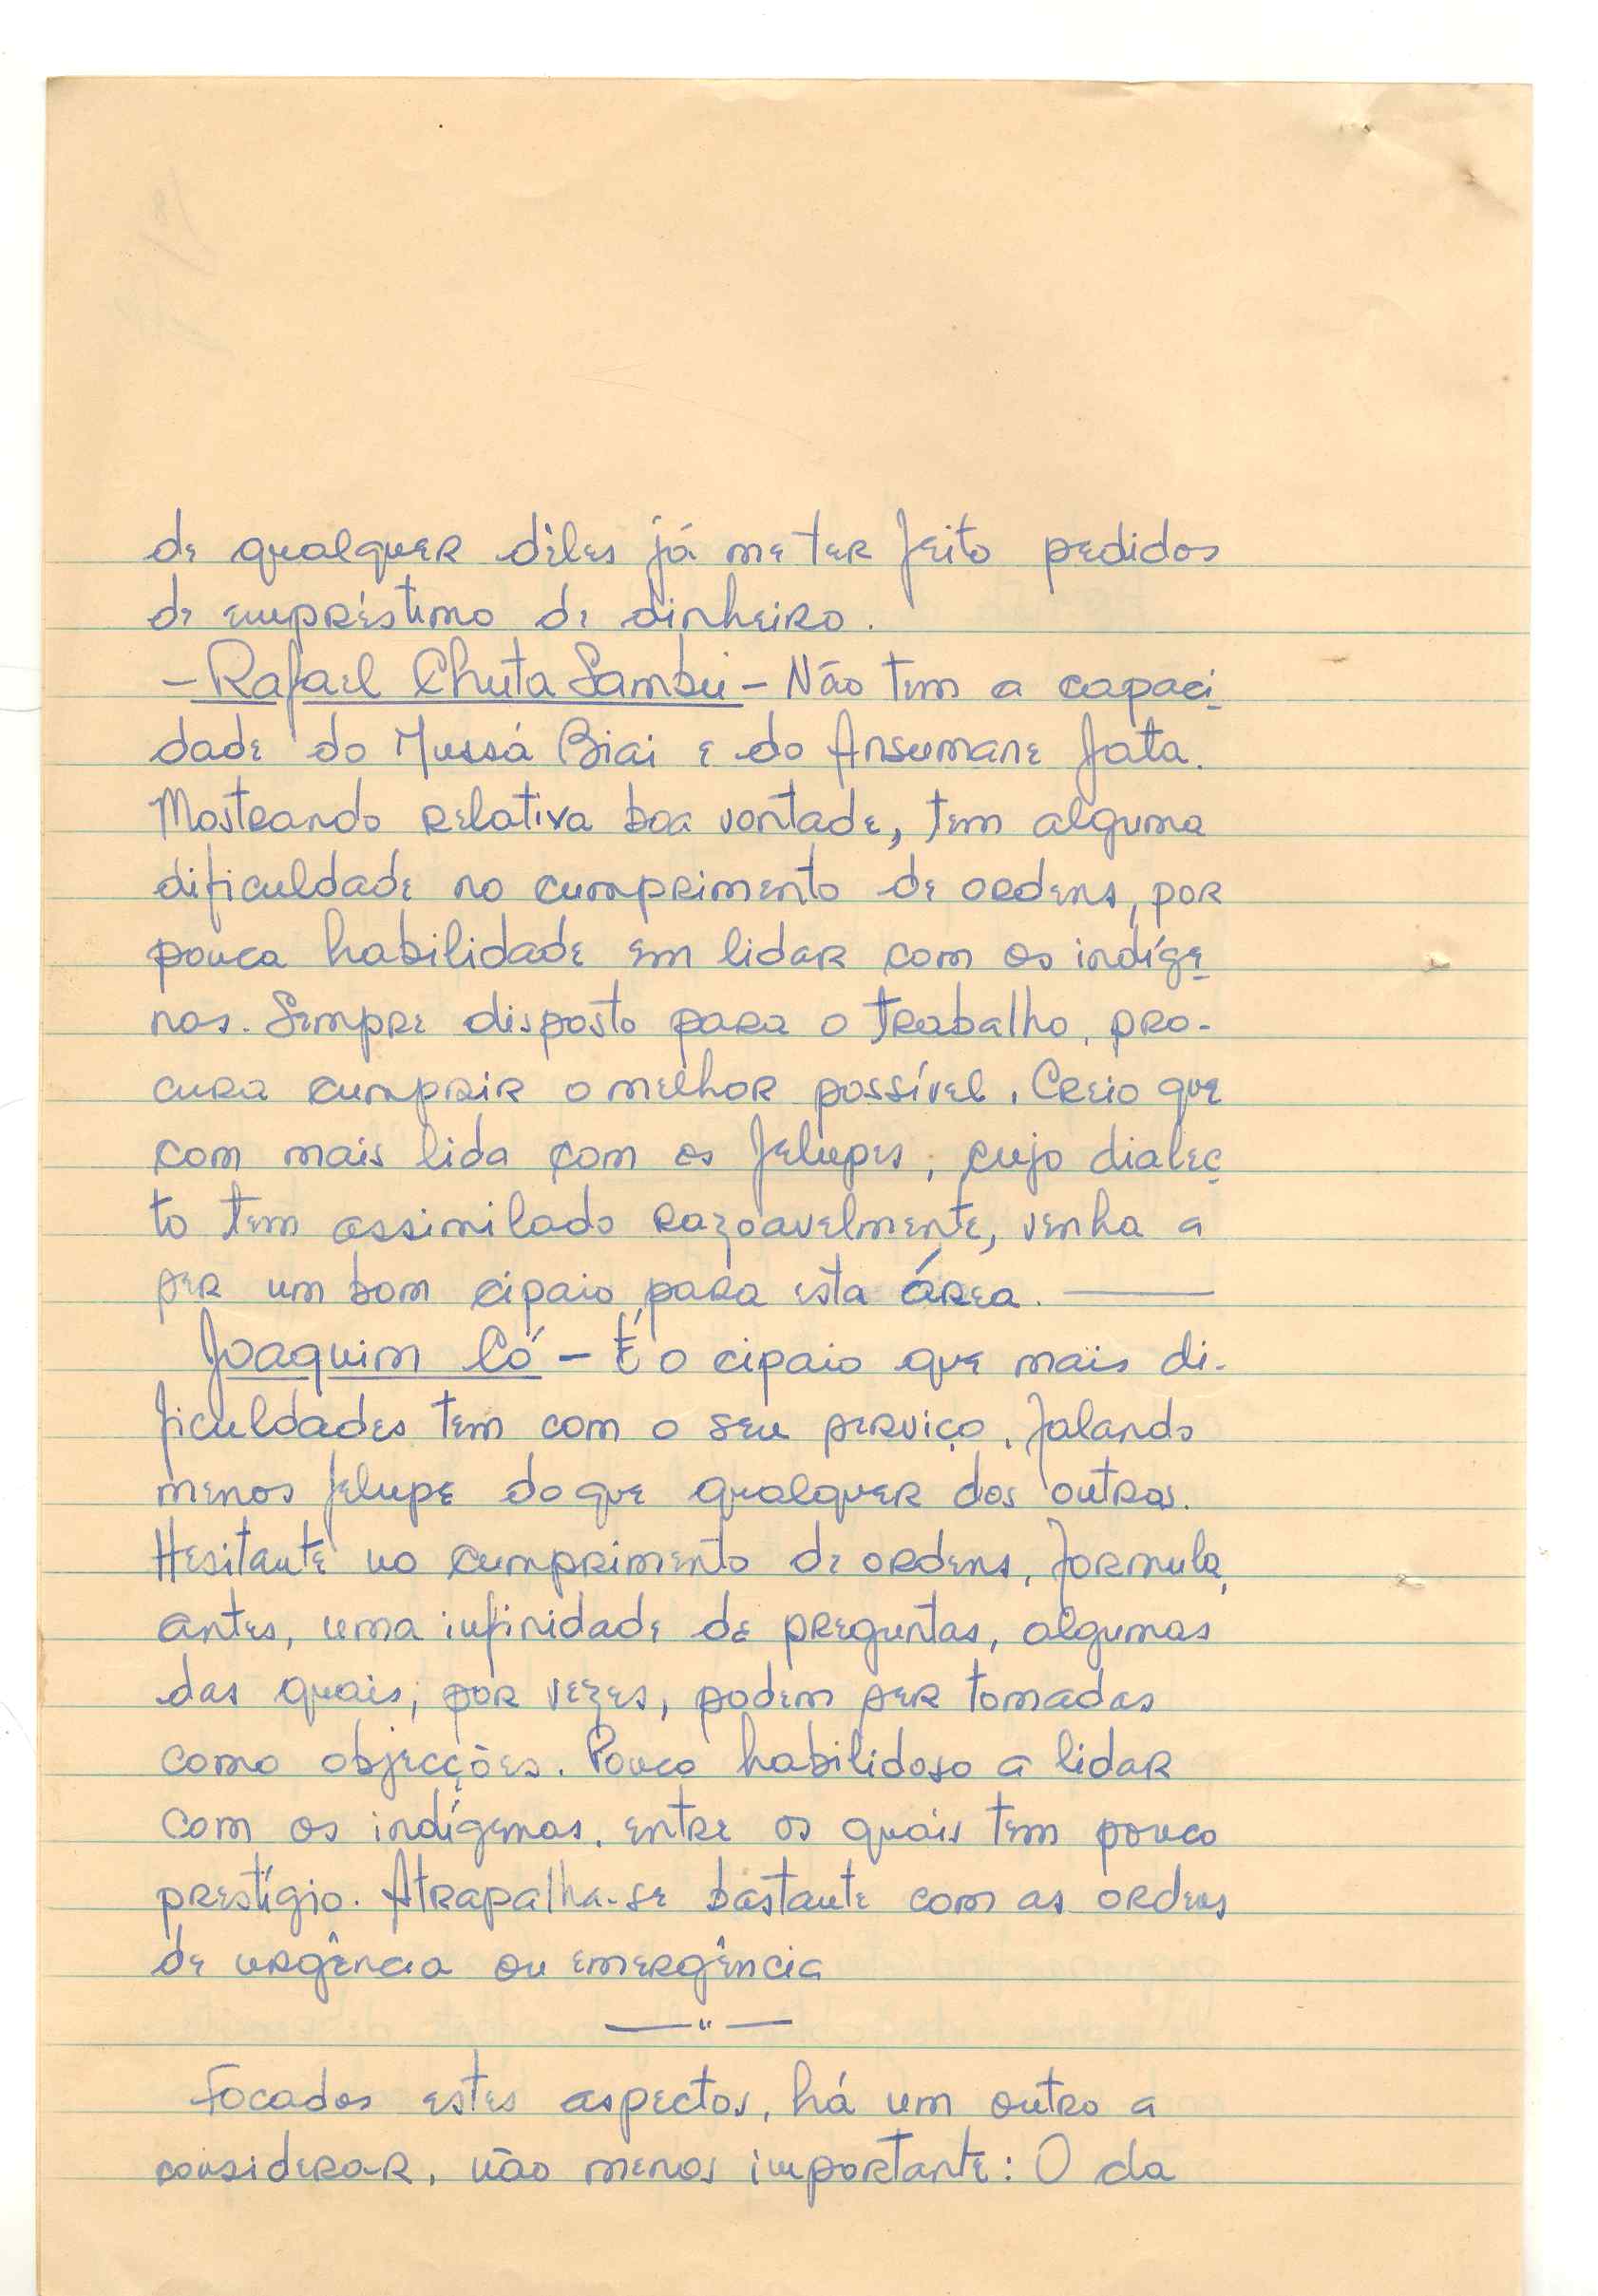 de qualquer dêles já me ter feito pedidos
de empréstimo de dinheiro.
- Rafael Chuta Sambú - Não tem a capaci-
dade do Mussá Biai e do Ansumane Jata.
Mostrando relativa boa vontade, tem alguma
dificuldade no cumprimento de ordens, por
pouca habilidade em lidar com os indíge-
nas. Sempre disposto para o trabalho, pro-
cura cumprir o melhor possível. Creio que
com mais lida com os felupes, cujo dialec-
to tem assimilado razoavelmente, venha a
ser um bom cipaio para esta área.
Joaquim Có - É o cipaio que mais di-
ficuldades tem com o seu serviço, falando
menos felupe do que qualquer dos outros.
Hesitante no cumprimento de ordens, formula,
antes, uma infinidade de preguntas, algumas
das quais, por vezes, podem ser tomadas
como objecções. Pouco habilidoso a lidar
com os indígenas, entre os quais tem pouco
prestígio. Atrapalha-se bastante com as ordens
de urgência ou emergência
—"—
Focados estes aspectos, há um outro a
considerar, não menos importante: O da